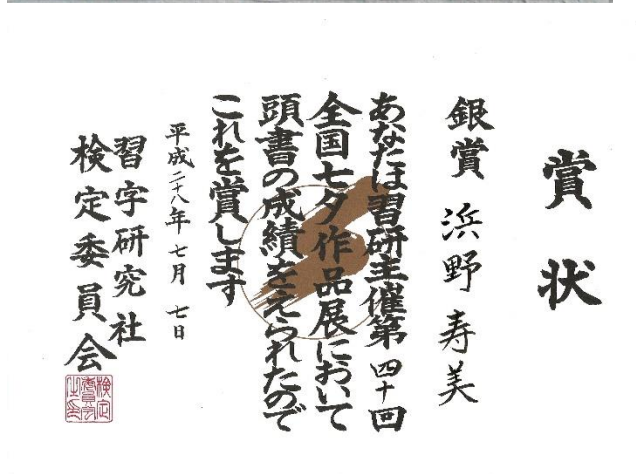 賞状
銀賞 浜野寿美
あなたは習研主催第四十回
全国七夕作品展において
頭書の成績をえられたので
これを賞します
平成二十八年七月七日
習字研究社
検定委員会